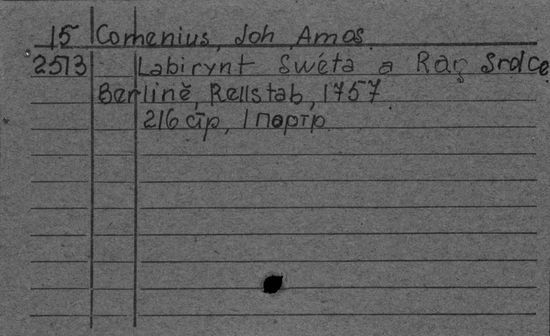 15 Comenius, Joh Amos
2513 Labirynt Swéta a Rag Srdce
Berlině, Rellstab, 1757
216 стр, 1 портр